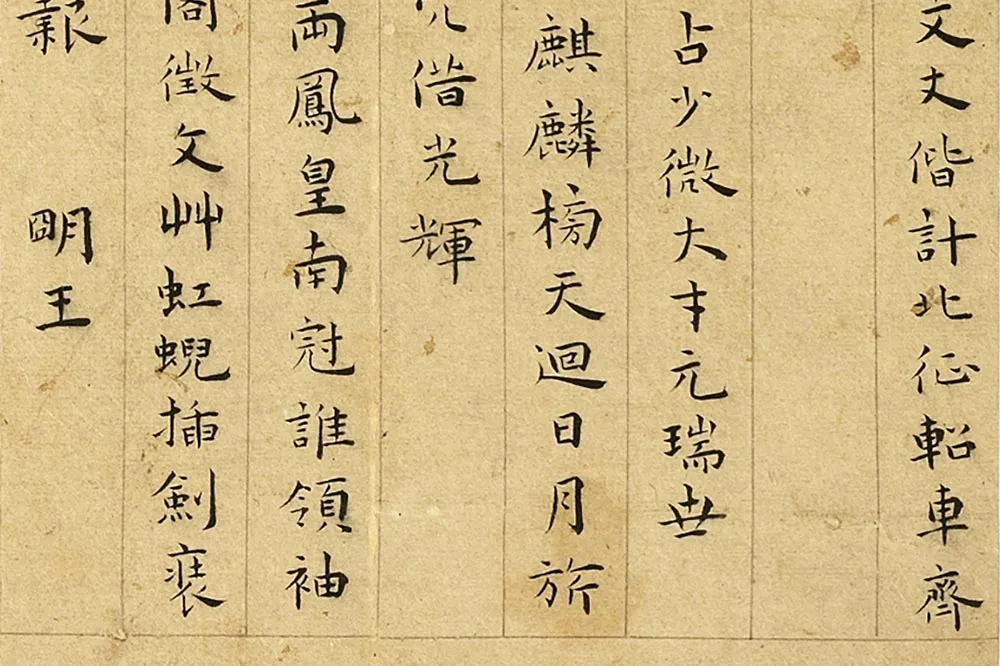 文丈偕計北征軺車齊
占少微大才元瑞世
麒麟榜天迴日月旂
偕光輝
兩鳳皇南冠誰領袖
徵文艸虹蜺插劍裏
報 明王